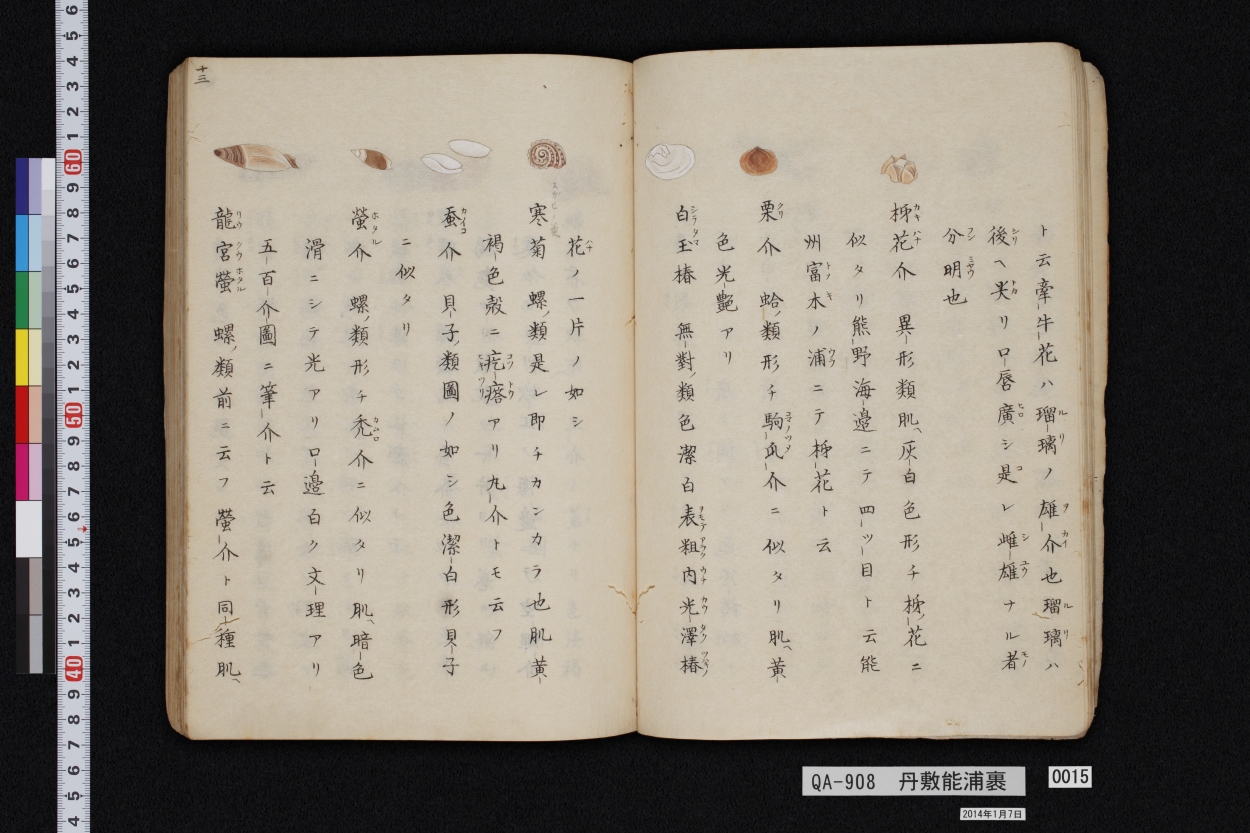 ト云牽牛花ハ瑠璃ノ雄介也瑠璃ハ
後ヘ尖リ口唇廣シ是レ雌雄ナル者
分明也
柹花介 異形類肌灰白色形チ柹花ニ
似タリ熊野海邉ニテ四ツ目ト云能
州富木ノ浦ニテ柹花ト云
栗介 蛤ノ類形チ駒爪介ニ似タリ肌黄
色光艶アリ
白玉椿 無對ノ類色潔白表粗内光澤椿
花ノ一片ノ如シ
寒菊 螺ノ類是レ即チカンカラ也肌黄
褐色殻ニ疙瘩アリ丸介トモ云フ
蚕介 貝子ノ類圖ノ如シ色潔白形貝子
ニ似タリ
螢介 螺ノ類形チ禿介ニ似タリ肌暗色
滑ニシテ光アリ口邉白ク文理アリ
五百介圖ニ筆介ト云
龍宮螢 螺ノ類前ニ云フ螢介ト同種肌
十三
QA-908 丹敷能浦裹
0015
2014年1月7日